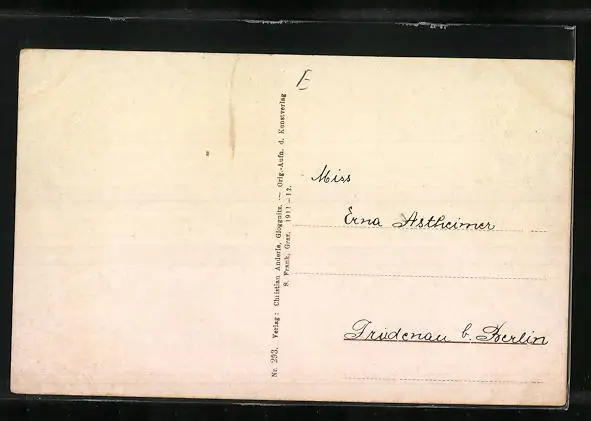 E
Nr. 293. Verlag: Christian Anderle, Gloggnitz. — Orig.-Aufn. d. Kunstverlag
S. Frank, Graz. 1911—12.
Miss
Erna Astheimer
Fridenau b. Berlin